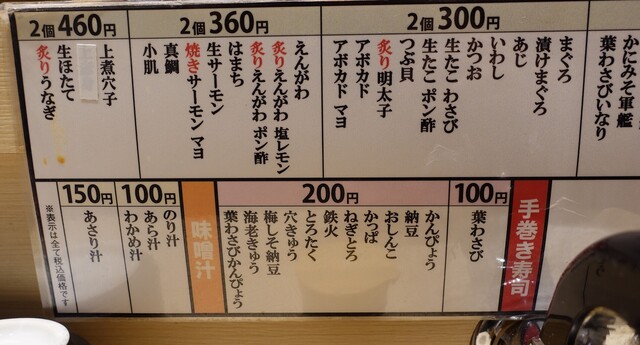 かにみそ軍艦
葉わさびいなり
2個300円
まぐろ
漬けまぐろ
あじ
いわし
かつお
生たこ わさび
生たこ ポン酢
つぶ貝
炙り明太子
アボカド
アボカド マヨ
2個360円
えんがわ
炙りえんがわ 塩レモン
炙りえんがわ ポン酢
はまち
生サーモン
焼きサーモン マヨ
真鯛
小肌
2個460円
上煮穴子
生ほたて
炙りうなぎ
手巻き寿司
100円
葉わさび
200円
かんぴょう
納豆
おしんこ
かっぱ
ねぎとろ
鉄火
とろたく
穴きゅう
梅しそ納豆
海老きゅう
葉わさびかんぴょう
味噌汁
100円
のり汁
あら汁
わかめ汁
150円
あさり汁
※表示は全て税込価格です